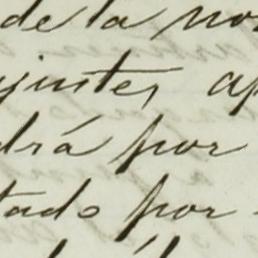 de la no
juntes, ap
drá por
tado por